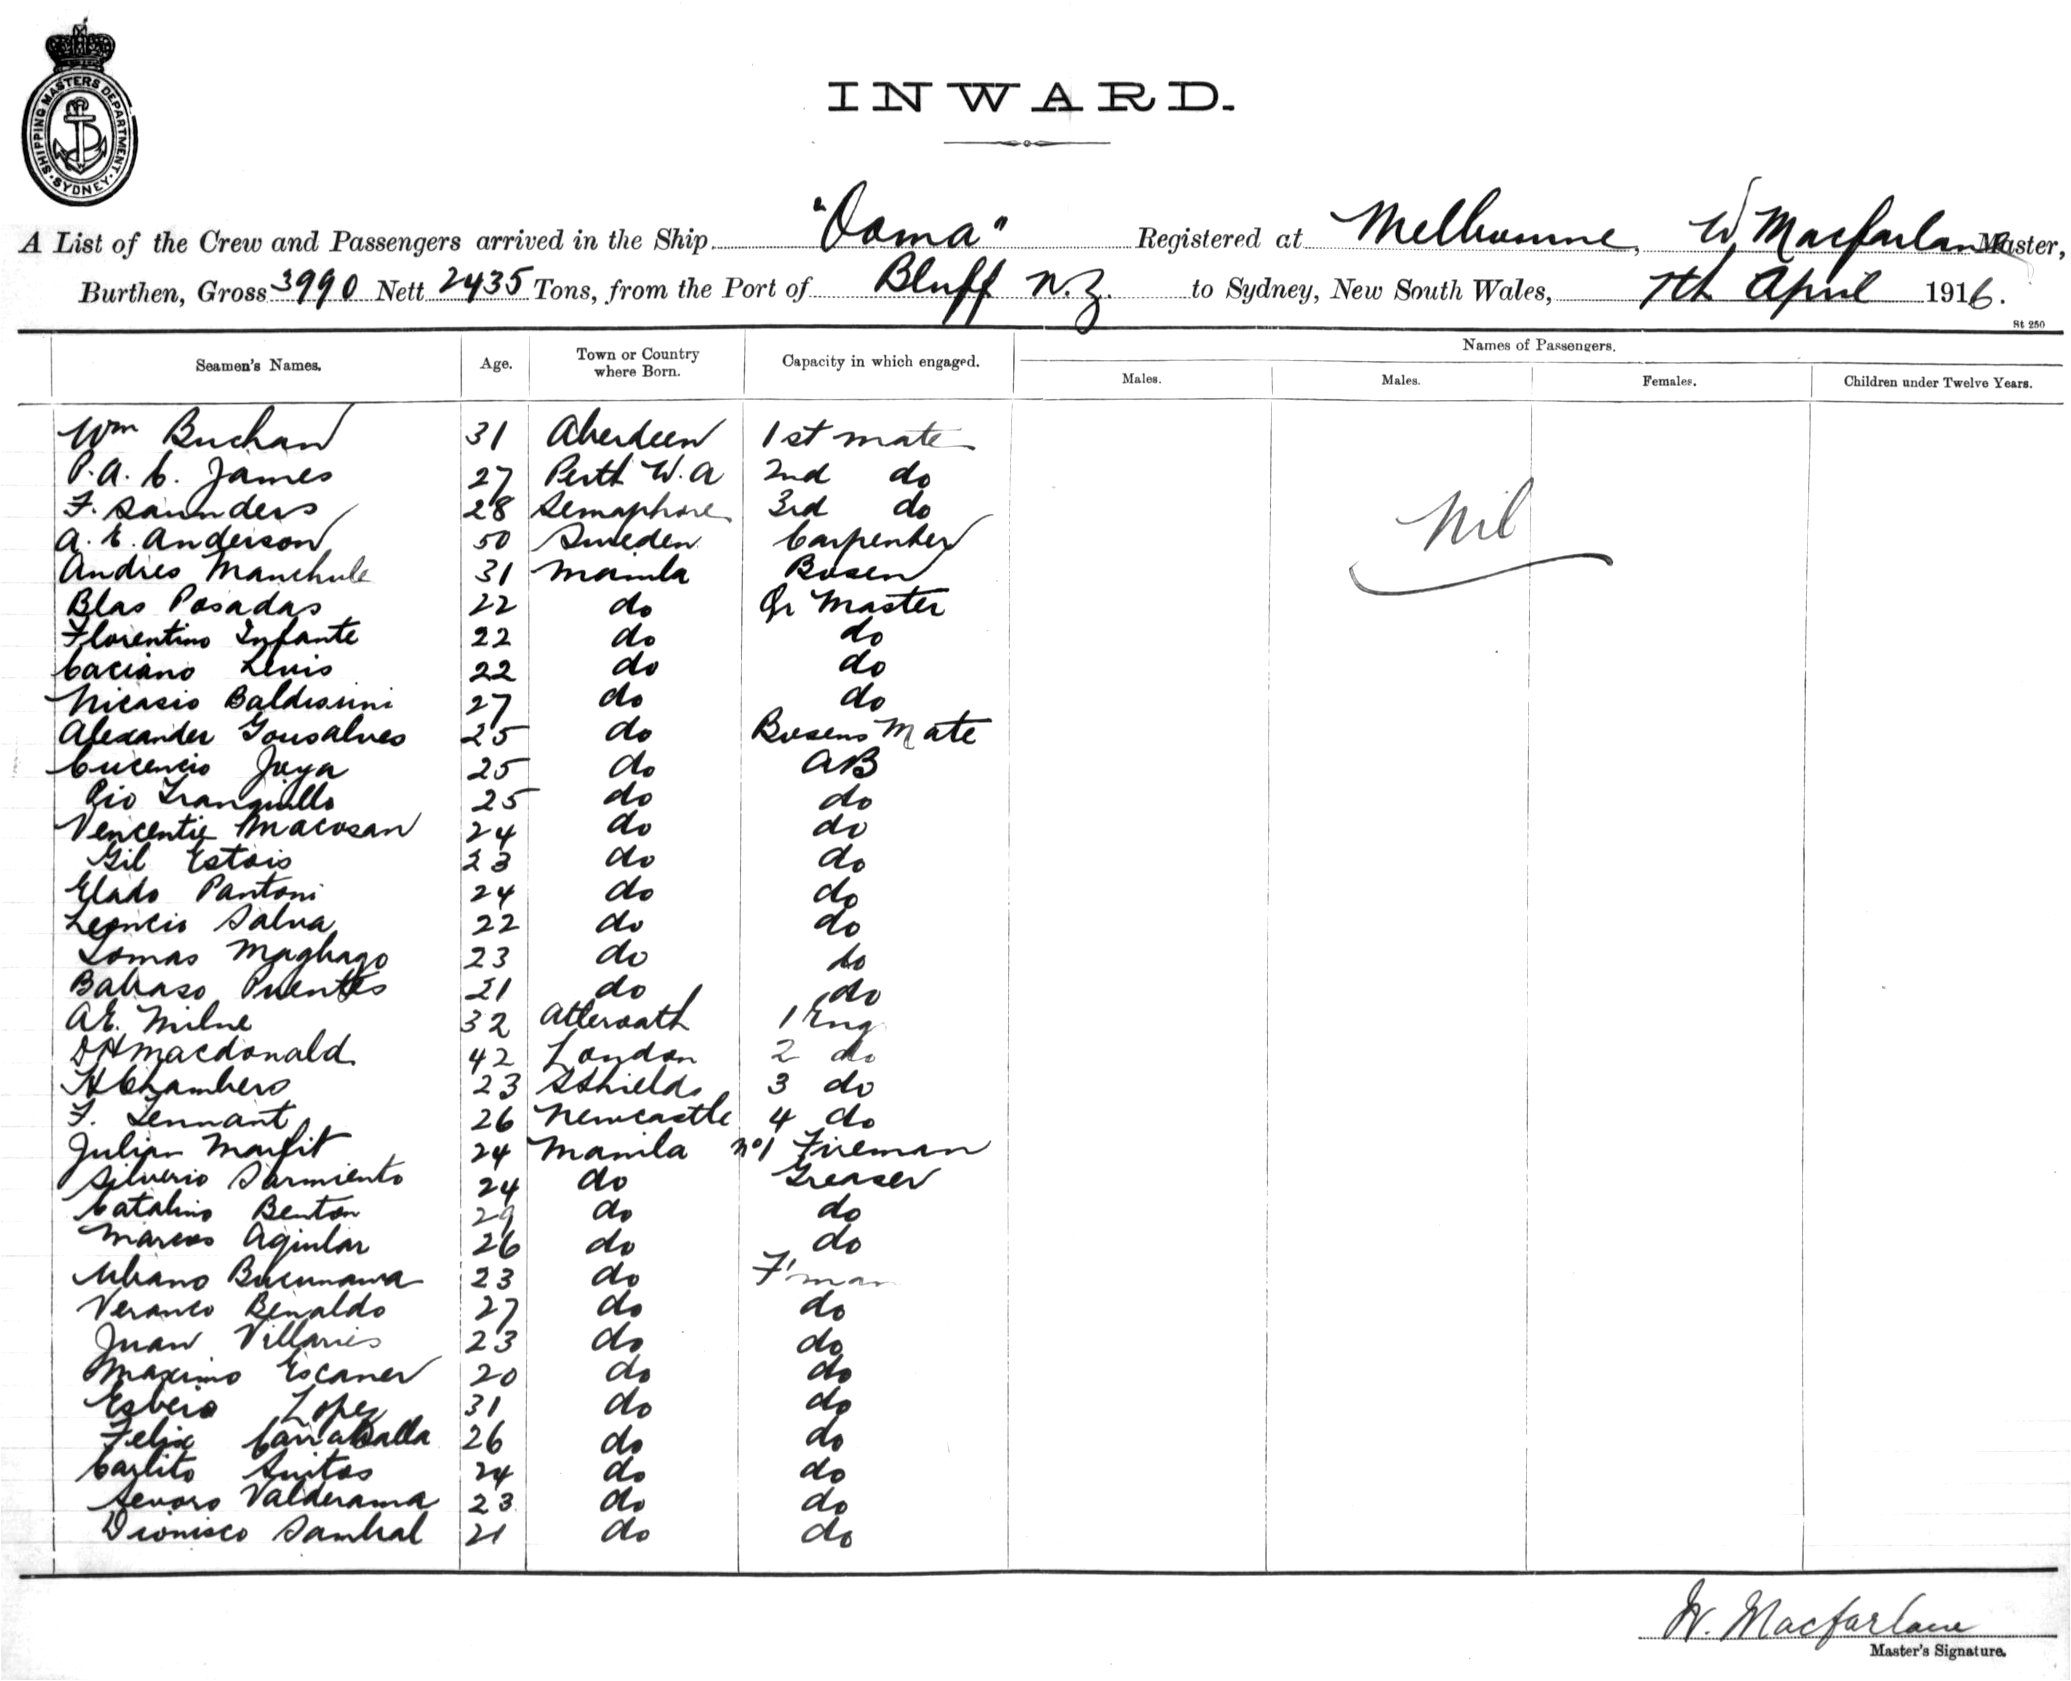 SHIPPING MASTERS DEPARTMENT. SYDNEY.
INWARD.
A List of the Crew and Passengers arrived in the Ship "Ooma" Registered at Melbourne, W Macfarlane Master,
Burthen, Gross 3990 Nett 2435 Tons, from the Port of Bluff N.Z. to Sydney, New South Wales, 7th April 1916.
St 250
Seamen's Names. Age. Town or Country where Born. Capacity in which engaged. Names of Passengers.
Males. Males. Females. Children under Twelve Years.
Wm Buchan 31 Aberdeen 1st mate
P.A.C. James 27 Perth W.A 2nd do
F. Saunders 28 Semaphore 3rd do
Nil
A.E. Anderson 50 Sweden Carpenter
Andres Manchule 31 Manila Bosen
Blas Posadas 22 do Qr Master
Florentino Infante 22 do do
Caciano Levis 22 do do
Nicasio Baldisimi 27 do do
Alexander Gonsalves 25 do Bosens Mate
Cucencio Joya 25 do AB
Pio Tranquillo 25 do do
Vencentie Macosan 24 do do
Gil Estois 23 do do
Elado Pantoni 24 do do
Leoncio Salva 22 do do
Tomas Magbago 23 do do
Babaso Puentes 21 do do
A.E. Milne 32 1 Eng
D H Macdonald 42 London 2 do
H Chambers 23 S Shields 3 do
F. Tennant 26 Newcastle 4 do
Julian Marfit 24 Manila No 1 Fireman
Silverio Sarmiento 24 do Greaser
Catalino Benton 29 do do
Marcos Aguilar 26 do do
Urbano Bucunawa 23 do F'man
Veranco Benaldo 27 do do
Juan Villaries 23 do do
Maximo Escaner 20 do do
Esbeio Lopez 31 do do
Felix Carraballa 26 do do
Carlito Suitos 24 do do
Senoro Valderama 23 do do
Dionisco Sambal 21 do do
W. Macfarlane
Master's Signature.